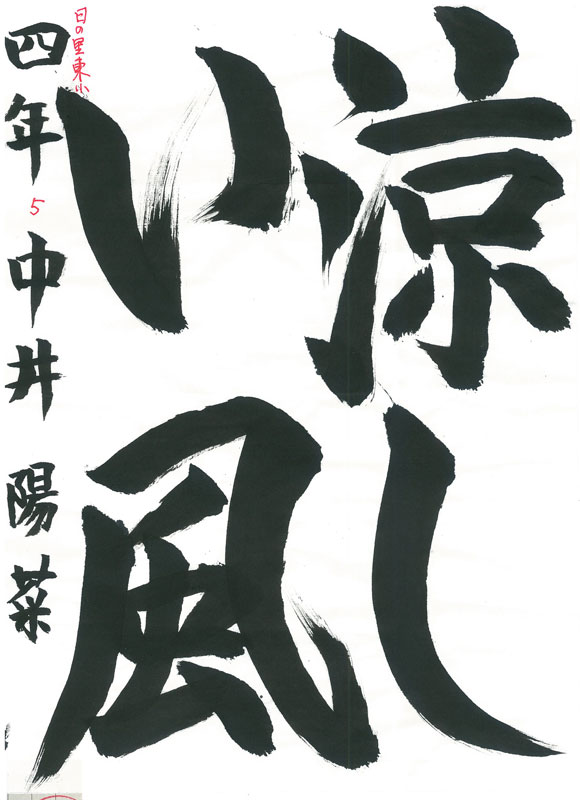 涼し
い風
四年 中井 陽菜
日の里東小
5